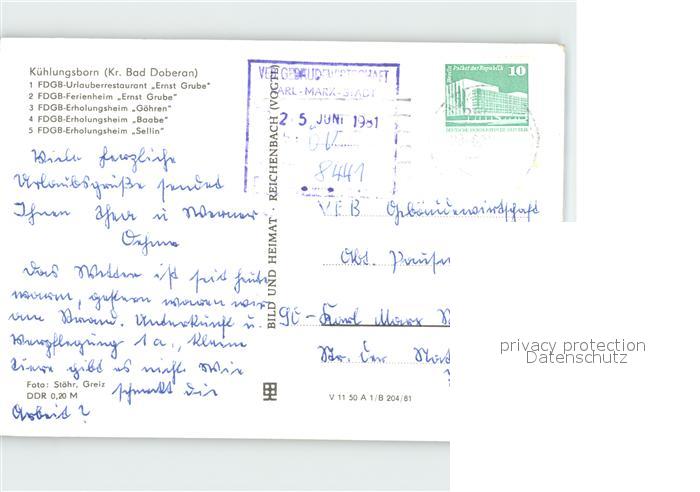 Kühlungsborn (Kr. Bad Doberan)
1 FDGB-Urlauberrestaurant „Ernst Grube"
2 FDGB-Ferienheim „Ernst Grube"
3 FDGB-Erholungsheim „Göhren"
4 FDGB-Erholungsheim „Baabe"
5 FDGB-Erholungsheim „Sellin"
Viele herzliche
Urlaubsgrüße sendet
Ihnen Thea u Werner
Oehme
Das Wetter ist seit heute
warm, gestern waren wir
am Strand. Unterkunft u.
Verpflegung 1a., kleine
Tiere gibt es nicht. Wie
schmeckt die
Arbeit?
Foto: Stöhr, Greiz
DDR 0,20 M
BILD UND HEIMAT · REICHENBACH (VOGTL)
VEB GEBÄUDEWIRTSCHAFT
KARL-MARX-STADT
25. JUNI 1981
8441
Berlin Palast der Republik
10
DEUTSCHE DEMOKRATISCHE REPUBLIK
VEB Gebäudewirtschaft
Abt.
90-Karl Marx
Str. der
V 11 50 A 1/B 204/81
privacy protection
Datenschutz